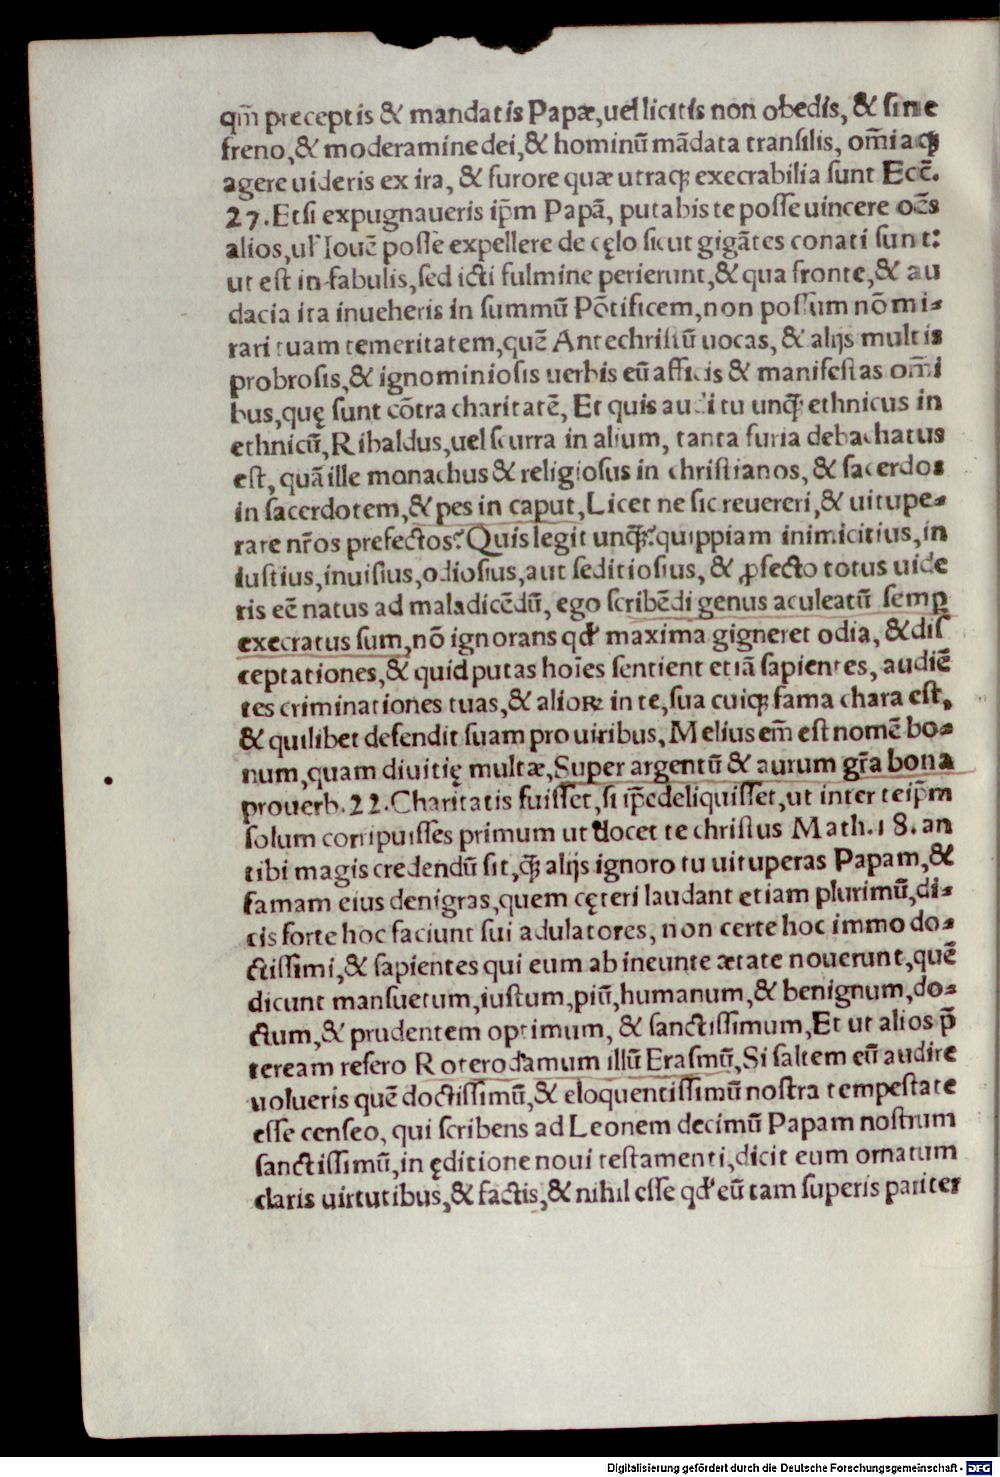 qm̄ preceptis & mandatis Papæ,uel licitis non obedis, & sine
freno,& moderamine dei,& hominū mādata transilis, om̄iaqꝫ
agere uideris ex ira, & furore quæ utraqꝫ execrabilia sunt Ecc̄.
27. Etsi expugnaueris ip̄m Papā, putabis te posse uincere oēs
alios,ul' Iouē posse expellere de cęlo sicut gigātes conati sunt:
ut est in fabulis,sed icti fulmine perierunt,& qua fronte,& au
dacia ita inueheris in summū Pōtificem,non possum nō mi-
rari tuam temeritatem,quē Antechristū uocas, & alijs multis
probrosis,& ignominiosis uerbis eū afficis & manifestas om̄i
bus,quę sunt cōtra charitatē, Et quis audi tu unqꝫ̄ ethnicus in
ethnicū,Ribaldus,uel scurra in alium, tanta furia debachatus
est, quā ille monachus & religiosus in christianos, & sacerdos
in sacerdotem,& pes in caput,Licet ne sic reuereri,& uitupe-
rare nr̄os prefectos? Quis legit unqꝫ̄? quippiam inimicitius,in
iustius,inuisius,odiosius,aut seditiosius, & ꝓfecto totus uide
ris eē natus ad maladicēdū, ego scribēdi genus aculeatū semp̱
execratus sum,nō ignorans qđ maxima gigneret odia, & dis
ceptationes,& quid putas hoīes sentient etiā sapientes, audiē
tes criminationes tuas,& alioꝝ in te,sua cuiqꝫ fama chara est,
& quilibet defendit suam pro uiribus, Melius em̄ est nomē bo-
num,quam diuitię multæ,Super argentū & aurum gr̄a bona
prouerb.22.Charitatis fuisset,si ip̄e deliquisset,ut inter te ip̄m
solum corripuisses primum ut docet te christus Math.18.an
tibi magis credendū sit,qꝫ̄ alijs ignoro tu uituperas Papam,&
famam eius denigras,quem cęteri laudant etiam plurimū,di-
cis forte hoc faciunt sui adulatores, non certe hoc immo do-
ctissimi,& sapientes qui eum ab ineunte ætate nouerunt,quē
dicunt mansuetum,iustum,piū,humanum,& benignum,do-
ctum,& prudentem optimum, & sanctissimum,Et ut alios p̄
teream refero Roterodamum illū Erasmū,Si saltem eū audire
uolueris quē doctissimū,& eloquentissimū nostra tempestate
esse censeo, qui scribens ad Leonem decimū Papam nostrum
sanctissimū,in ęditione noui testamenti,dicit eum ornatum
claris uirtutibus,& factis,& nihil esse qđ eū tam superis pariter
Digitalisierung gefördert durch die Deutsche Forschungsgemeinschaft - DFG